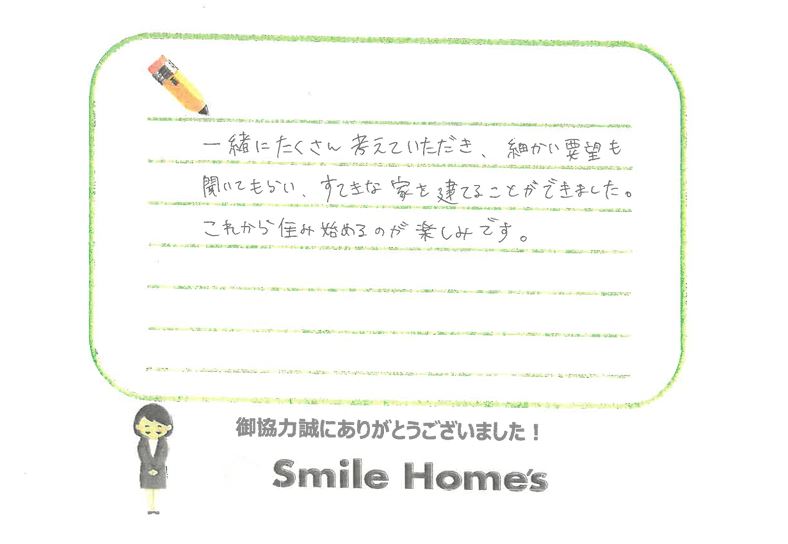 一緒にたくさん考えていただき、細かい要望も
聞いてもらい、すてきな家を建てることができました。
これから住み始めるのが楽しみです。
御協力誠にありがとうございました！
Smile Home's